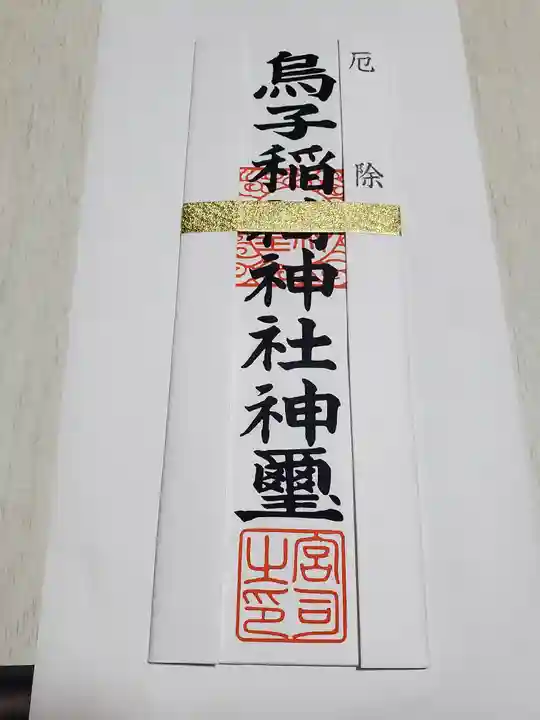 厄除
烏子稲荷神社神璽
宮司
之印